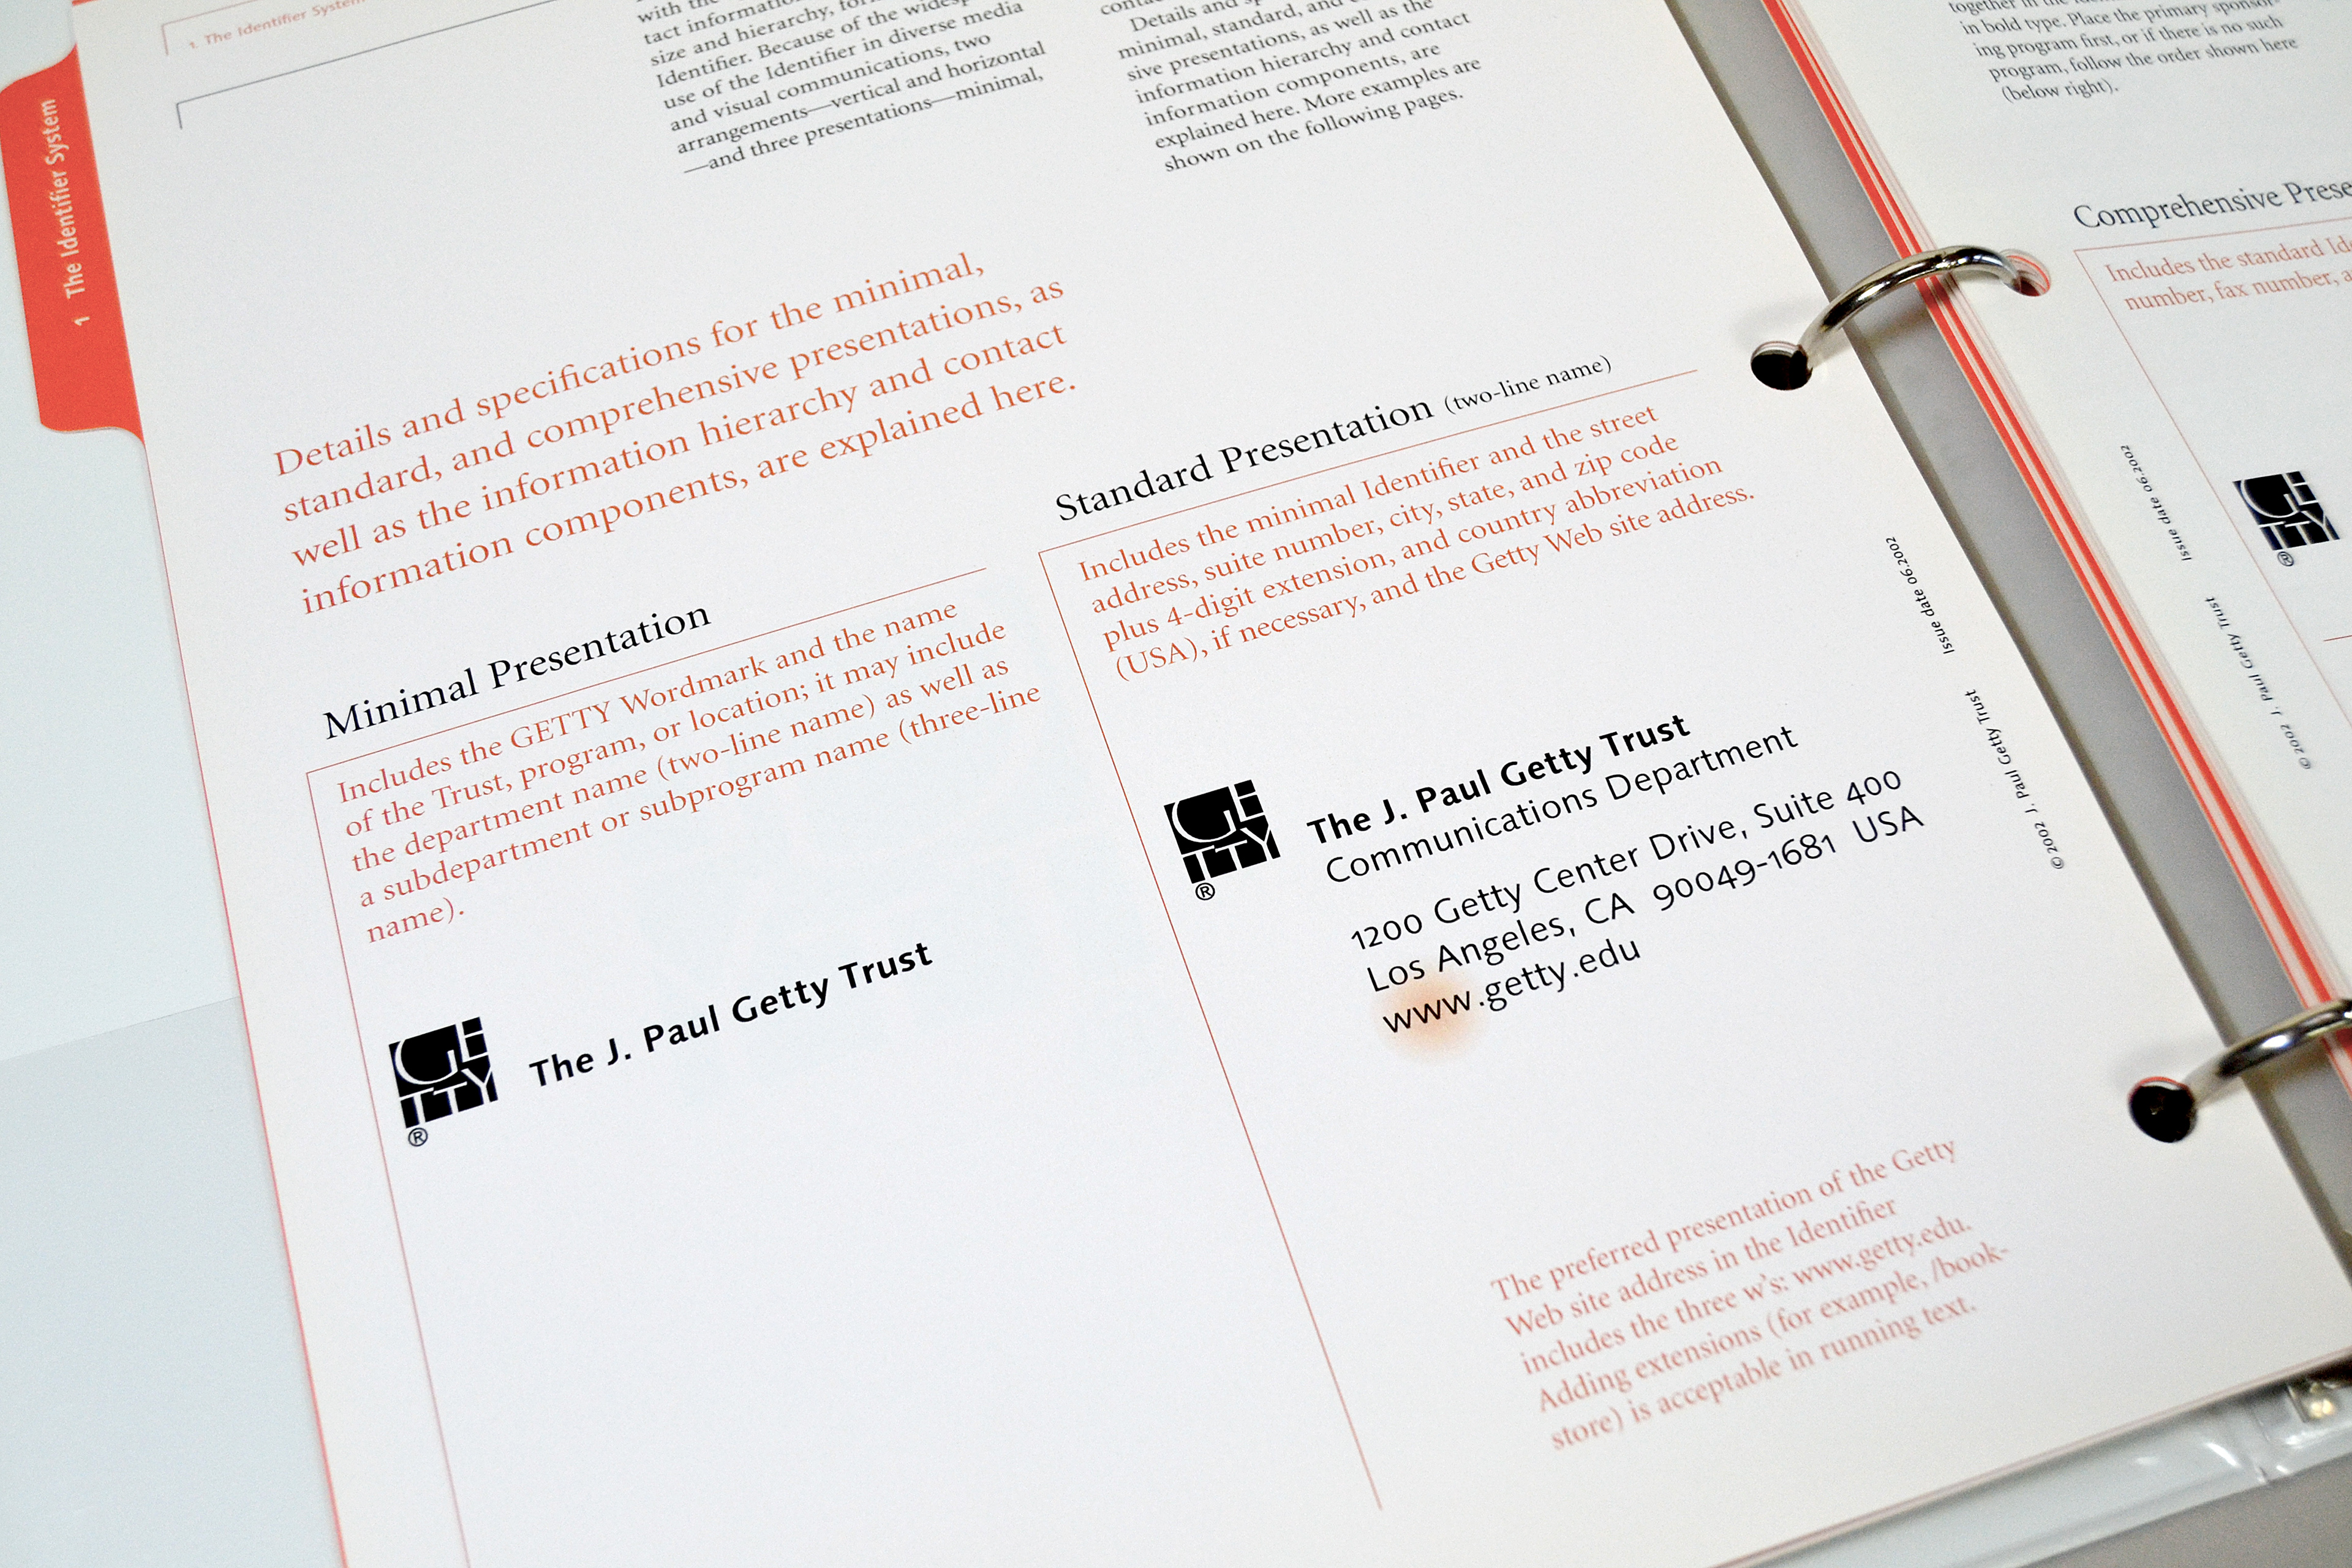 1 The Identifier System
1 The Identifier System
with the
tact information
size and hierarchy, for
Identifier. Because of the
use of the Identifier in diverse media
and visual communications, two
arrangements—vertical and horizontal
—and three presentations—minimal,
Details and
minimal, standard, and
sive presentations, as well as the
information hierarchy and contact
information components, are
explained here. More examples are
shown on the following pages.
Details and specifications for the minimal,
standard, and comprehensive presentations, as
well as the information hierarchy and contact
information components, are explained here.
Minimal Presentation
Includes the GETTY Wordmark and the name
of the Trust, program, or location; it may include
the department name (two-line name) as well as
a subdepartment or subprogram name (three-line
name).
GETTY
®
The J. Paul Getty Trust
Standard Presentation (two-line name)
Includes the minimal Identifier and the street
address, suite number, city, state, and zip code
plus 4-digit extension, and country abbreviation
(USA), if necessary, and the Getty Web site address.
GETTY
®
The J. Paul Getty Trust
Communications Department
1200 Getty Center Drive, Suite 400
Los Angeles, CA 90049-1681 USA
www.getty.edu
The preferred presentation of the Getty
Web site address in the Identifier
includes the three w's: www.getty.edu.
Adding extensions (for example, /book-
store) is acceptable in running text.
© 2002 J. Paul Getty Trust Issue date 06.2002
together in the
in bold type. Place the primary sponsor-
ing program first, or if there is no such
program, follow the order shown here
(below right).
Comprehensive Prese
Includes the standard Id
number, fax number, a
GETTY
®
© 2002 J. Paul Getty Trust Issue date 06.2002